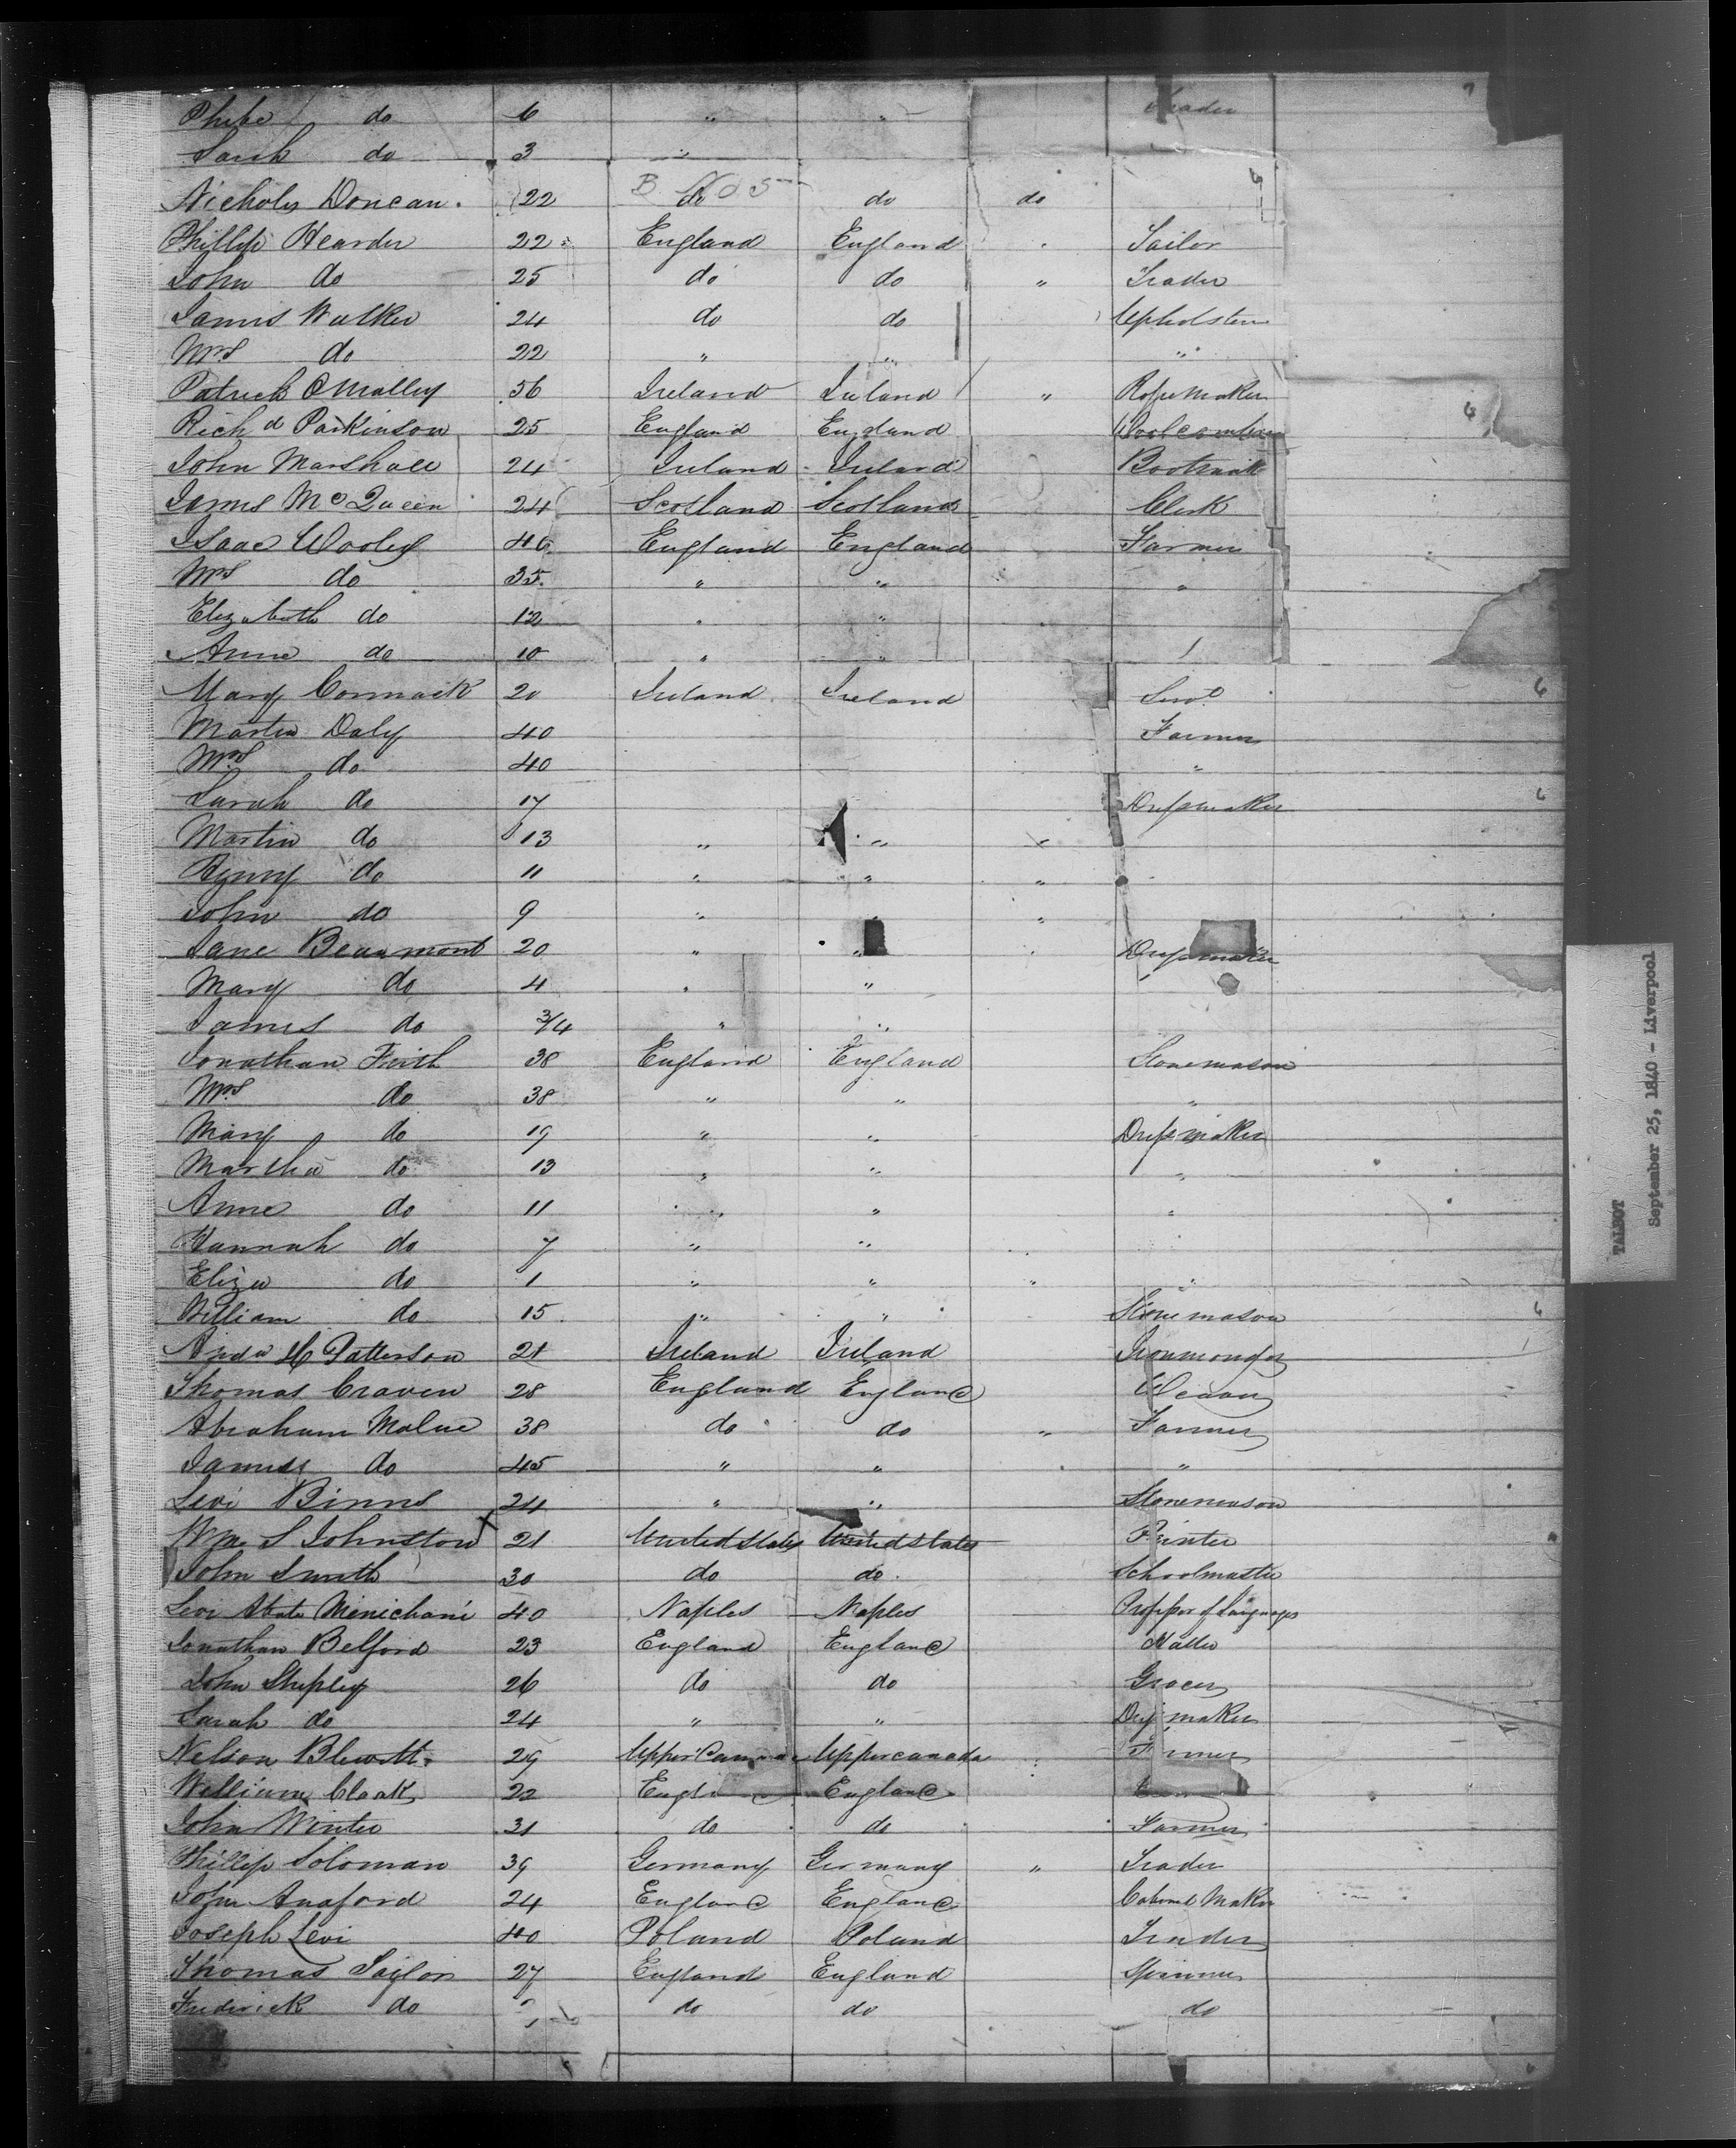 Phebe do 6 " " Trader
Sarah do 3 "
B No 5
Nicholas Doncan. 22 do do do
Phillip Hearder 22 England England " Tailor
John do 25 do do " Trader
James Walker 24 do do Upholster
Mrs do 22 " " "
Patrick OMalley 56 Ireland Ireland " Ropemaker
Richd Parkinson 25 England England Woolcomber
John Marshall 24 Ireland Ireland
James McQueen 24 Scotland Scotland Clerk
Isaac Wooley 46 England England Farmer
Mrs do 35 " " "
Elizabeth do 12 " "
Anne do 10 " "
Mary Cormack 20 Ireland Ireland Servt
Martin Daly 40 Farmer
Mrs do 40 "
Sarah do 17 Dressmaker
Martin do 13 " " "
do 11 " " "
John do 9 " " "
Jane Beaumont 20 " " Dressmaker
Mary do 4 " "
James do 3/4 " "
Jonathan Firth 38 England England Stonemason
Mrs do 38 " " "
Mary do 19 " " Dressmaker
Martha do 13 " " "
Anne do 11 " " "
Hannah do 7 " "
Eliza do 1 " " " "
William do 15 " " Stonemason
Andw Patterson 21 Ireland Ireland Ironmonger
Thomas Craven 28 England England Weaver
Abraham Malue 38 do do " Farmer
James do 45 " " "
Levi Binns 24 " " Stonemason
Wm S Johnston 21 United States United States Printer
John Smith 30 do do Schoolmaster
Levi Abate Minichani 40 Naples Naples Professor of Languages
Jonathan Belford 23 England England Hatter
John Shipley 26 do do Grocer
Sarah do 24 " " Dressmaker
Nelson Blewett 29 Upper Canada Upper canada Farmer
William Clark 22 England England
John Winter 31 do do Farmer
Phillip Soloman 39 Germany Germany " Trader
John Anaford 24 England England Cabinet Maker
Joseph Levi 40 Poland Poland Trader
Thomas Taylor 27 England England Spinner
Frederick do do do do
TALBOT
September 25, 1840 - Liverpool